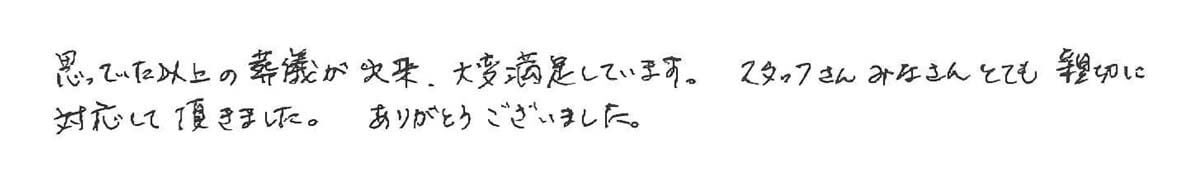 思っていた以上の葬儀が出来、大変満足しています。 スタッフさんみなさんとても親切に
対応して頂きました。 ありがとうございました。